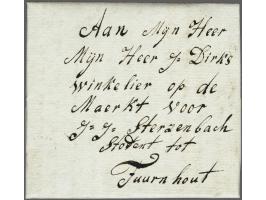 Aan Mijn Heer
Mijn Heer J: Dirks
Winkelier op de
Maerkt voor
J: J: Sterzenbach
Stodent tot
Tuurnhout